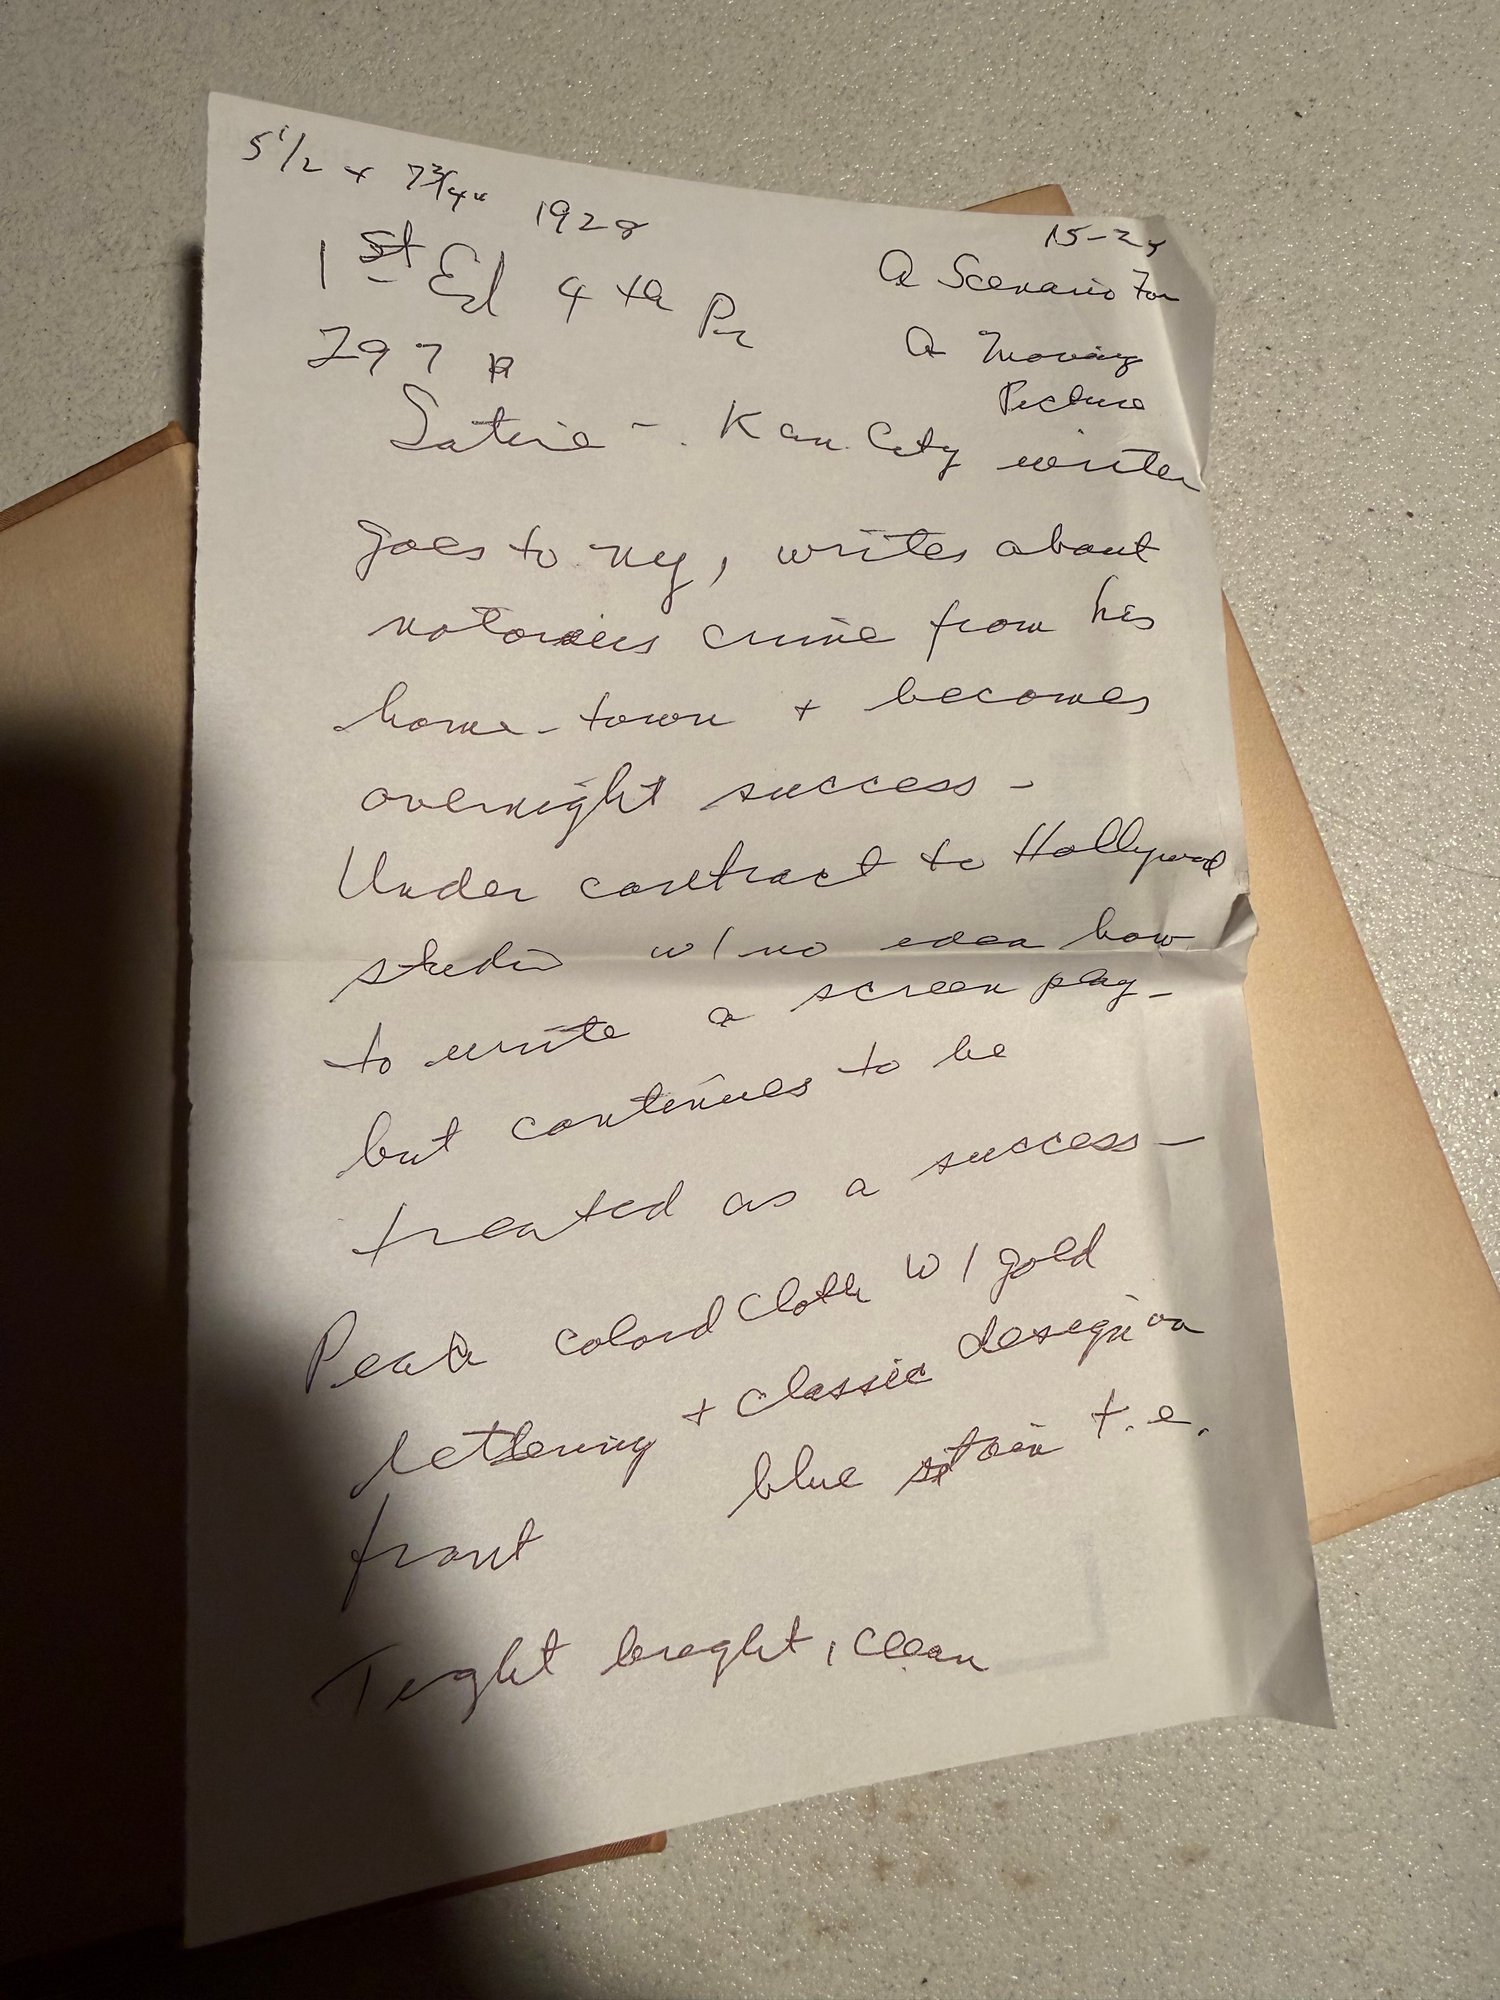 5 1/2 x 7 3/4" 1928
15-25
1st Ed 4th Pr
A Scenario For
A Moving
Picture
297 p
Satire - Kan. City writer
goes to NY, writes about
notorious crime from his
home-town + becomes
overnight success -
Under contract to Hollywood
studio w/ no idea how
to write a screen play -
but continues to be
treated as a success -
Peach colord cloth w/ gold
lettering + classic design on
front blue stain t.e.
Tight bright, clean